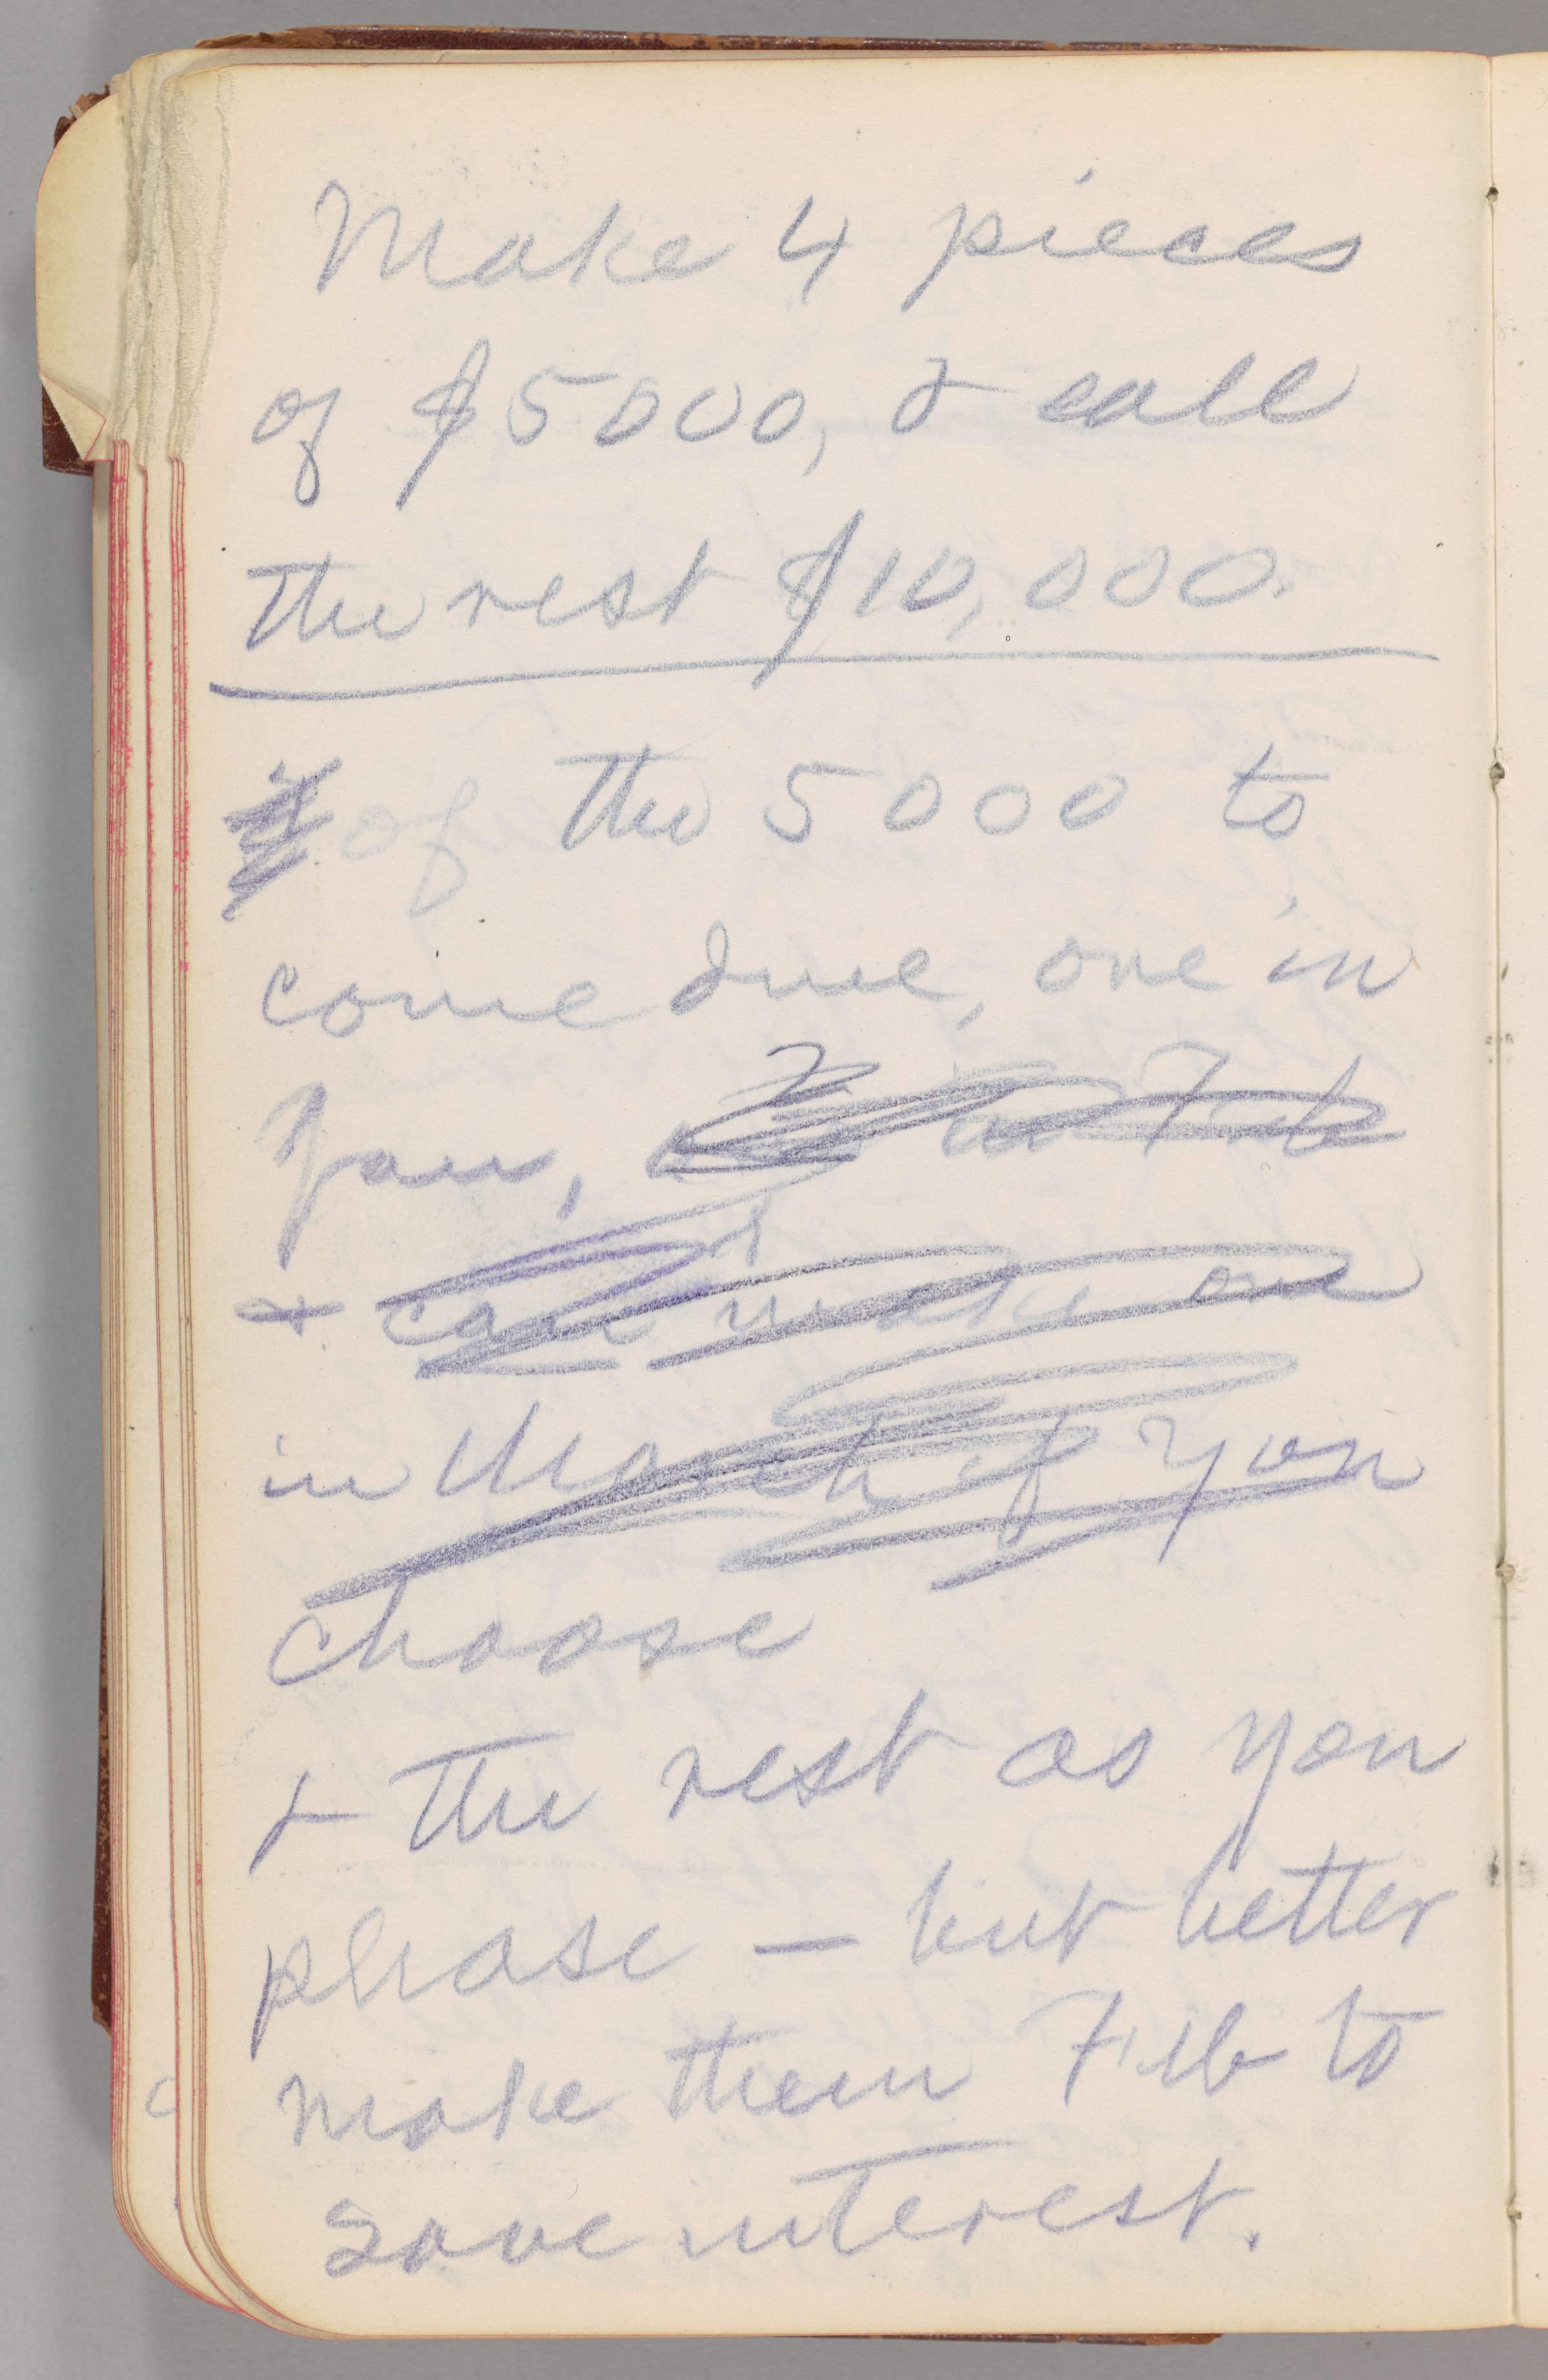 Make 4 pieces
of $5000, & call
the rest $10,000.
of the 5000 to
come due, one in
Jan, in Feb
& can make one
in March if you
choose
& the rest as you
please — but better
make them Feb to
save interest.